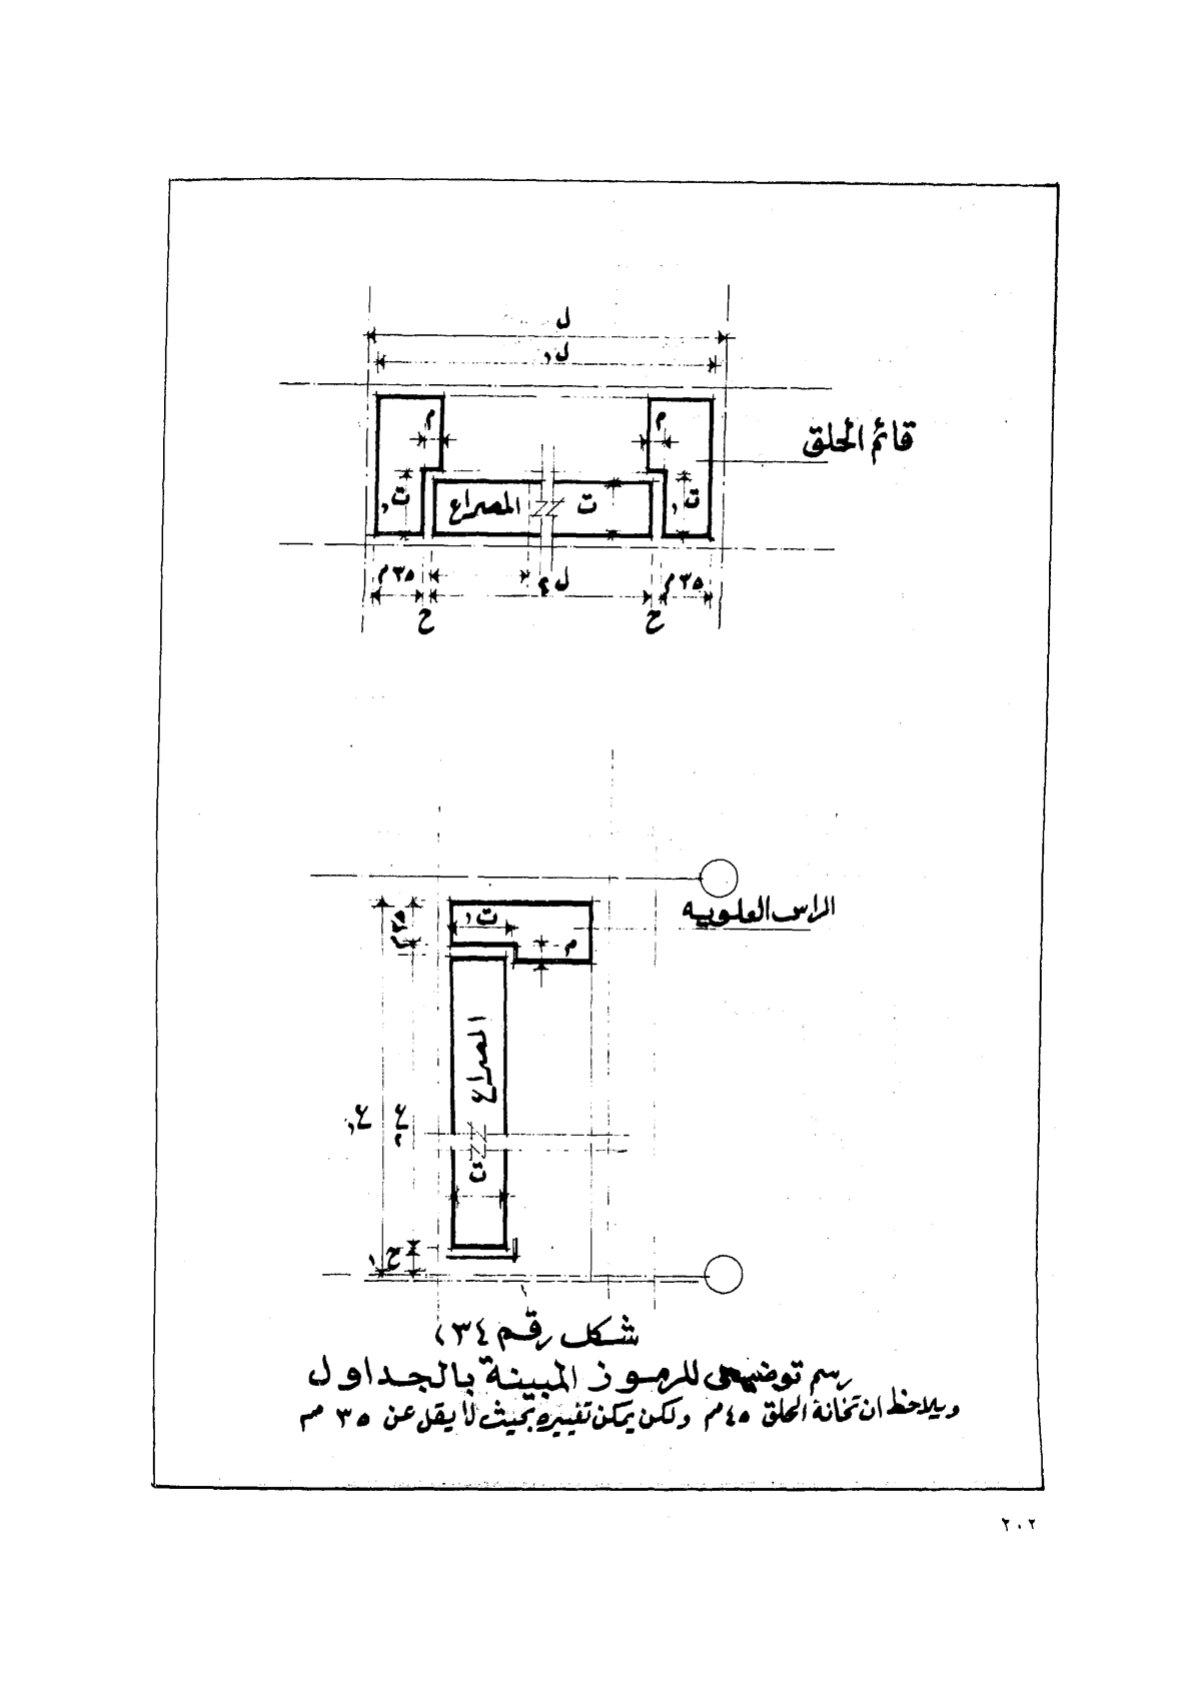 ل
ل١
قائم الحلق
م
م
ت١
المصراع
ت
ت١
٣٥م
ل٢
٣٥م
ح
ح
الراس العلويه
ت١
م
٣٥م
المصراع
ع١
ع٢
ت
ح١
شكل رقم ٣٤
رسم توضيحى للرموز المبينة بالجداول
ويلاحظ ان تخانة الحلق ٤٥م ولكن يمكن تغييره بحيث لا يقل عن ٣٥ مم
٢٠٢